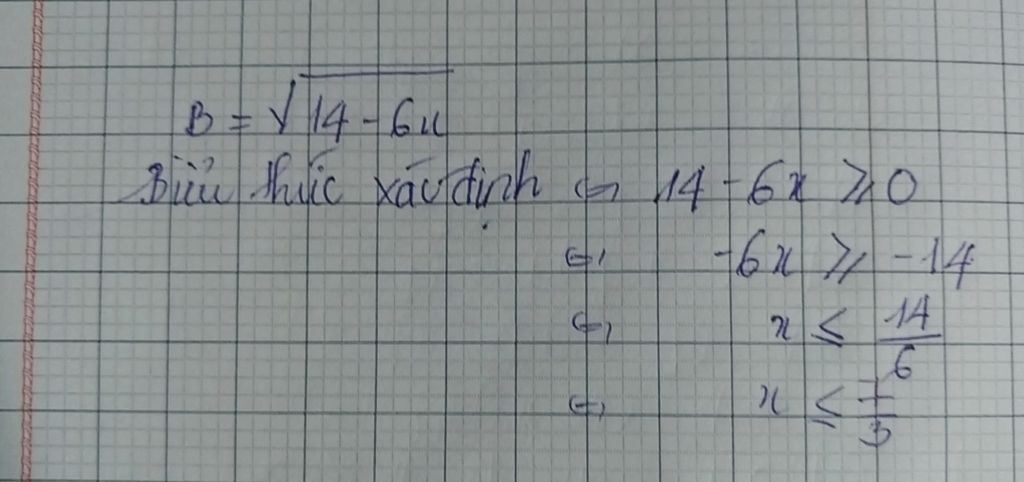 B = √14 - 6x
Biểu thức xác định ⇔ 14 - 6x ≥ 0
⇔ -6x ≥ -14
⇔ x ≤ 14/6
⇔ x ≤ 7/3